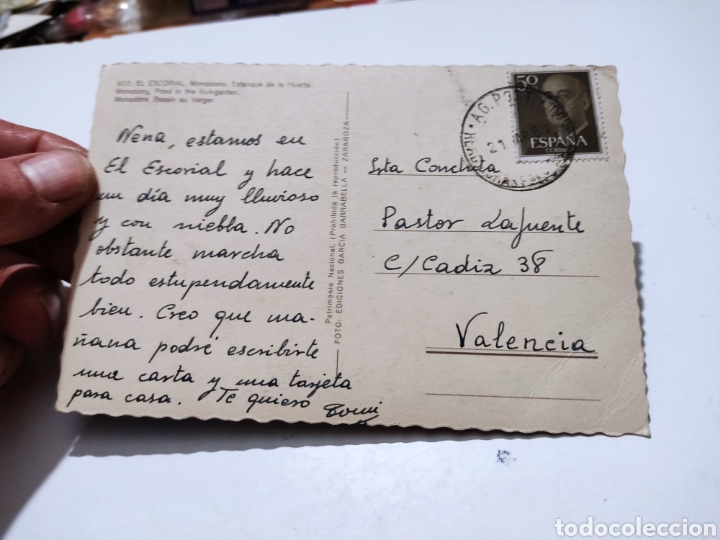 EL ESCORIAL. Monasterio. Estanque de la Huerta.
Monastery. Pond in the
Monastère. Bassin au Verger.
Nena, estamos en
El Escorial y hace
un día muy lluvioso
y con niebla. No
obstante marcha
todo estupendamente
bien. Creo que ma-
ñana podré escribirte
una carta y una tarjeta
para casa. Te quiero
Patrimonio Nacional. (Prohibida la reproducción)
FOTO: EDICIONES GARCIA GARRABELLA — ZARAGOZA
50
ESPAÑA
CORREOS
21
Srta Conchita
Pastor Lafuente
C/ Cadiz 38
Valencia
todocoleccion